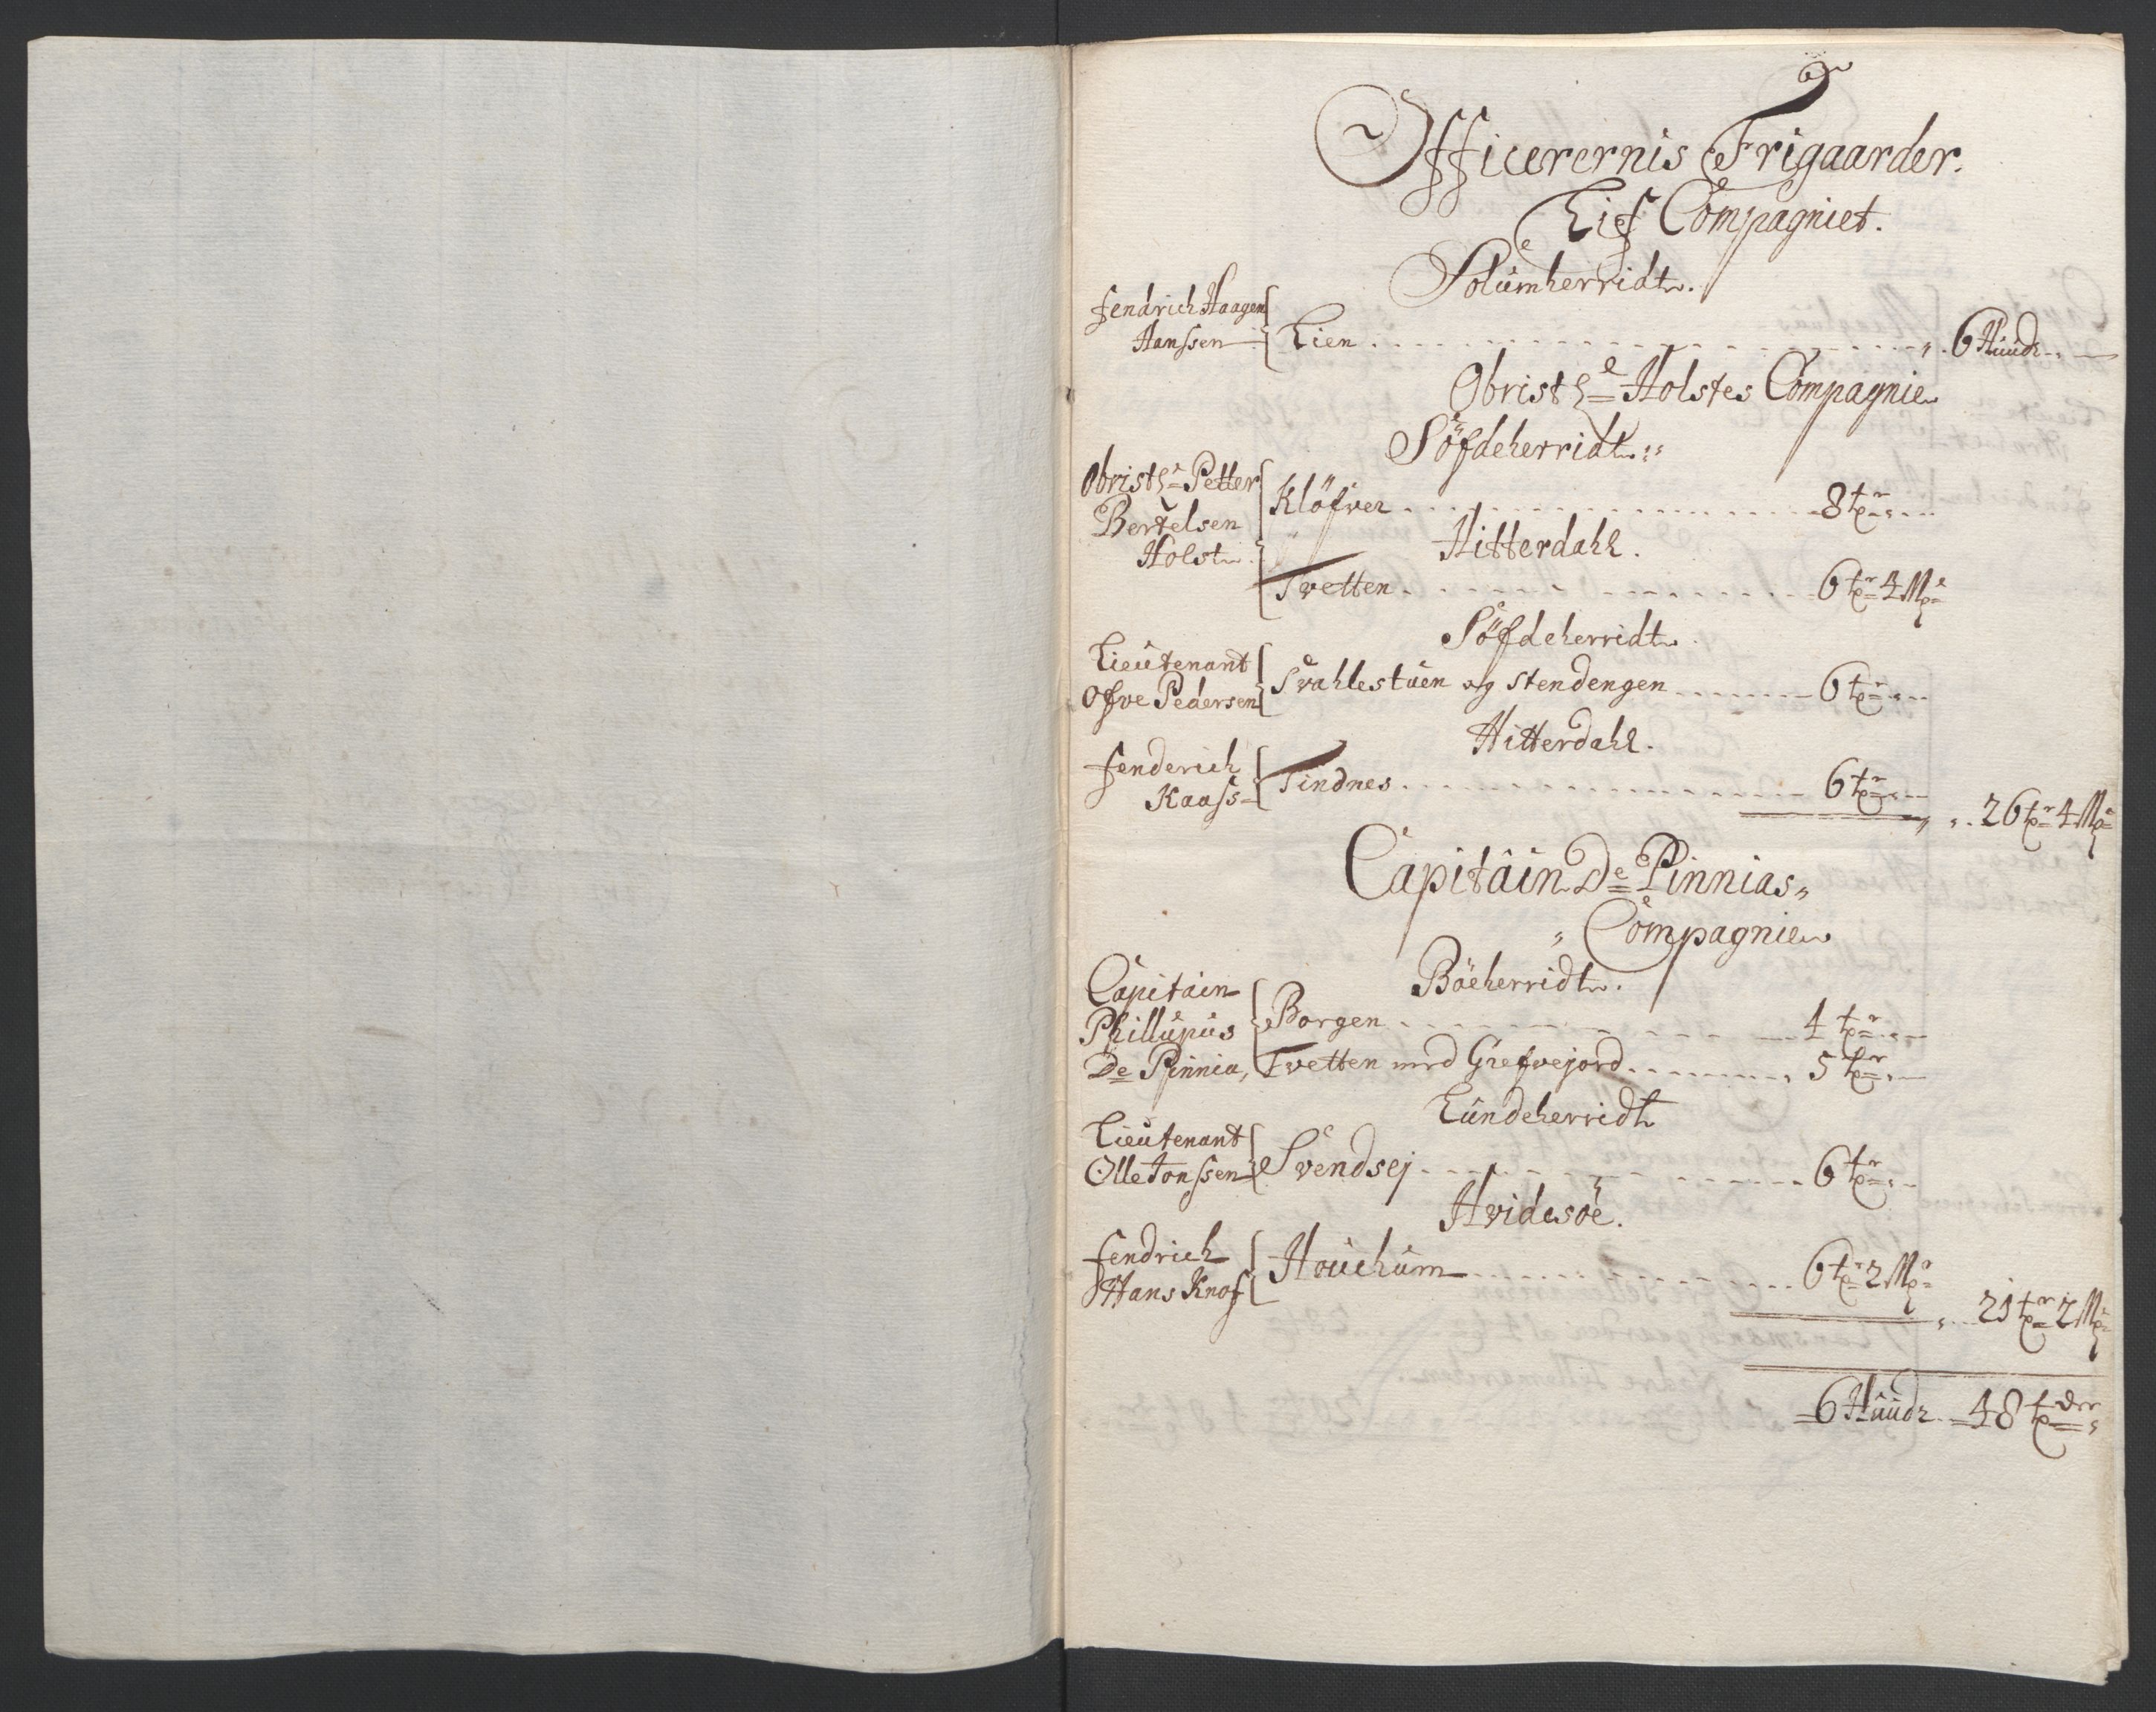 Officerernis Frigaarder.
Lif Compagniet.
Solumherridt.
fendrich Haagen
Hanssen Lien 6 Hudr
Obrist Lt Holstes Compagnie
Söfdeherridt
Obrist Lt Petter
Bertelsen
Holst
Klöfver 8 tpr
Hitterdahl.
Tvetten 6 tpr 4 Mpl
Söfdeherridt
Lieutenant
Ofve Pedersen
Svahlestuen og Stendengen 6 tpr
Hitterdahl.
fenderich
Kaass Tindnes 6 tpr
26 tpr 4 Mpl
Capitain De Pinnias
Compagnie
Böeherridt.
Capitain
Phillupus
De Pinnia,
Borgen 4 tpr
Tvetten med Grefvejord 5 tpr
Lundeherridt
Lieutenant
Olle Jonssen Svendsej 6 tpr
Hvidesöe.
fendrich
Hans Knof
Houchum 6 tpr 2 Mpl
21 tpr 2 Mpl
6 Hudr 48 tpdr